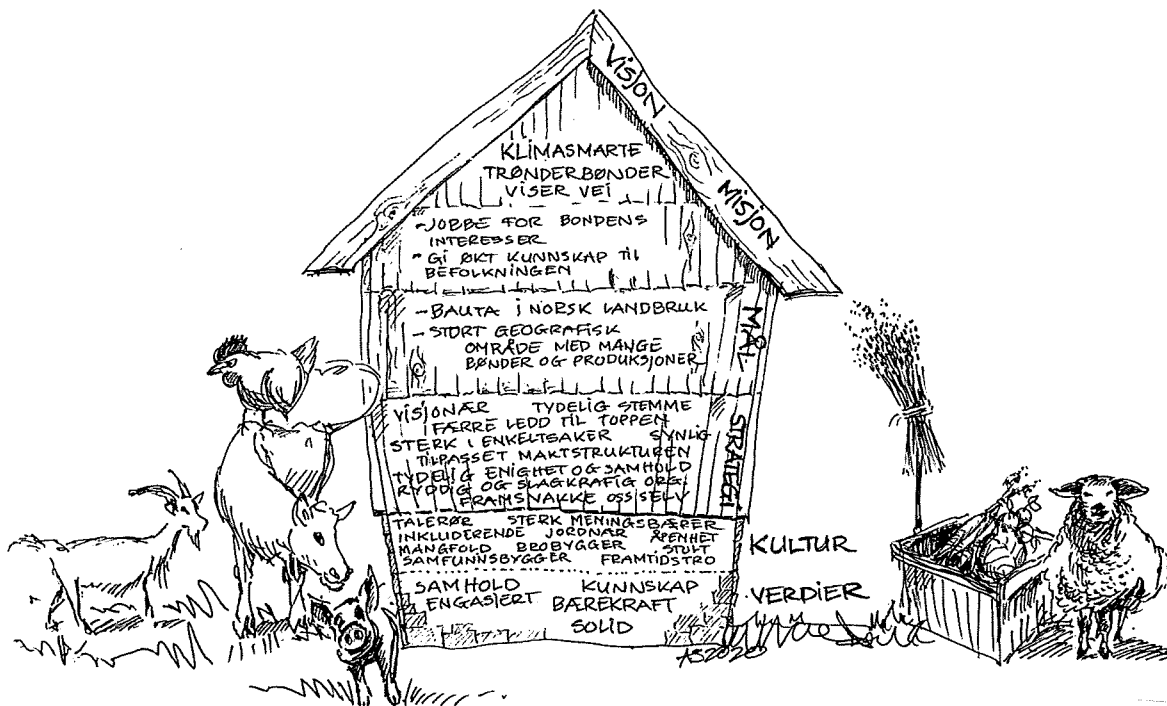 VISJON
KLIMASMARTE
TRØNDERBØNDER
VISER VEI
MISJON
- JOBBE FOR BONDENS
INTERESSER
- GI ØKT KUNNSKAP TIL
BEFOLKNINGEN
MÅL
- BAUTA I NORSK LANDBRUK
- STORT GEOGRAFISK
OMRÅDE MED MANGE
BØNDER OG PRODUKSJONER
STRATEGI
VISJONÆR TYDELIG STEMME
FÆRRE LEDD TIL TOPPEN
STERK I ENKELTSAKER SYNLIG
TILPASSET MAKTSTRUKTUREN
TYDELIG ENIGHET OG SAMHOLD
RYDDIG OG SLAGKRAFIG ORG.
FRAMSNAKKE OSS SELV
TALERØR STERK MENINGSBÆRER
INKLUDERENDE JORDNÆR ÅPENHET
MANGFOLD BROBYGGER STOLT
SAMFUNNSBYGGER FRAMTIDSTRO
KULTUR
SAMHOLD KUNNSKAP
ENGASJERT BÆREKRAFT
SOLID
VERDIER
AS2020